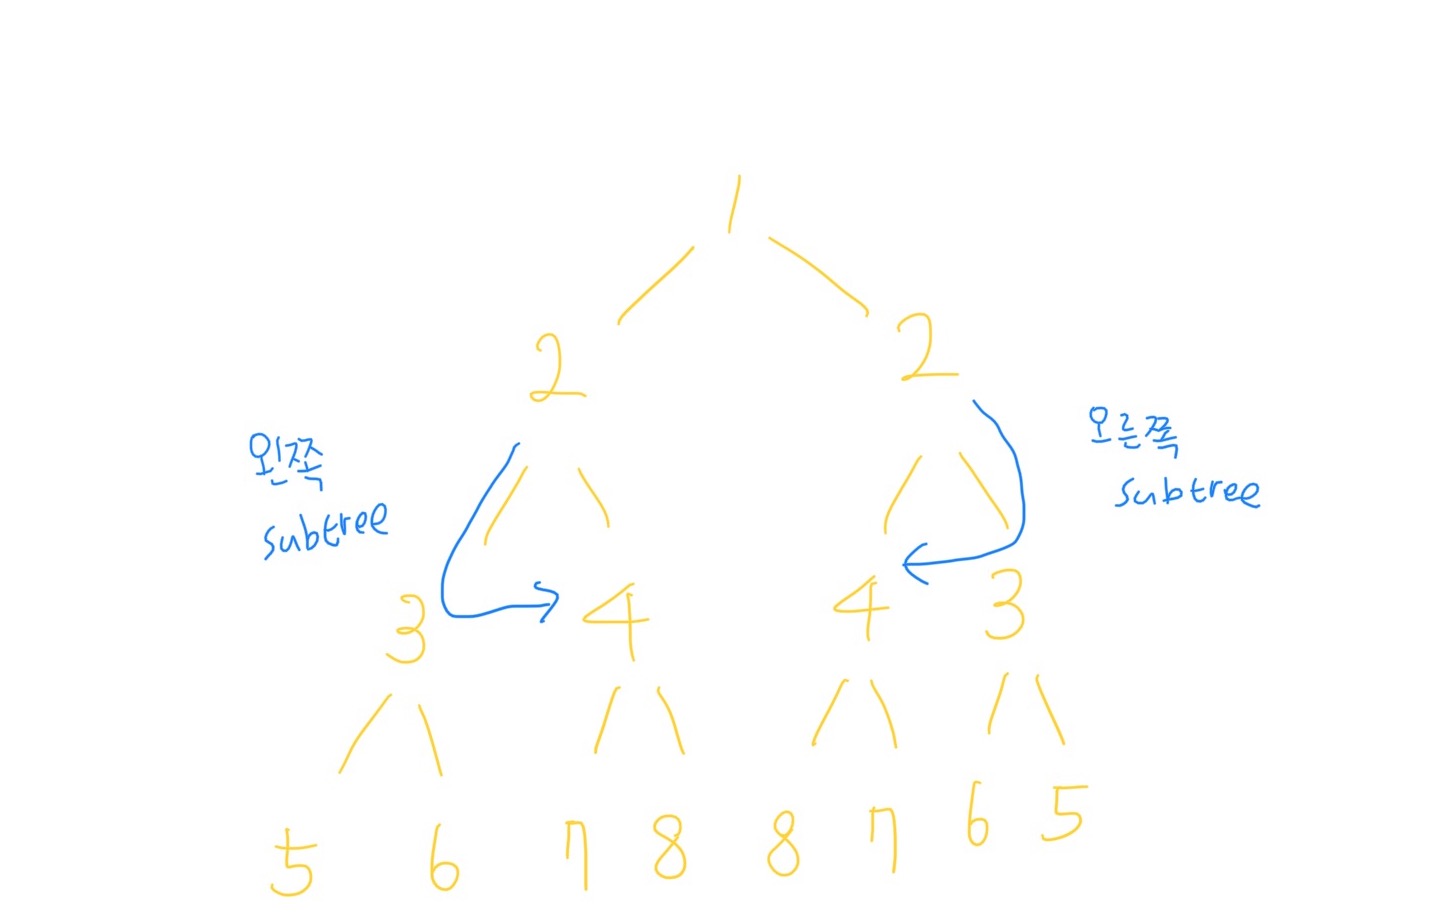 1
2 2
왼쪽
subtree
오른쪽
subtree
3 4 4 3
5 6 7 8 8 7 6 5